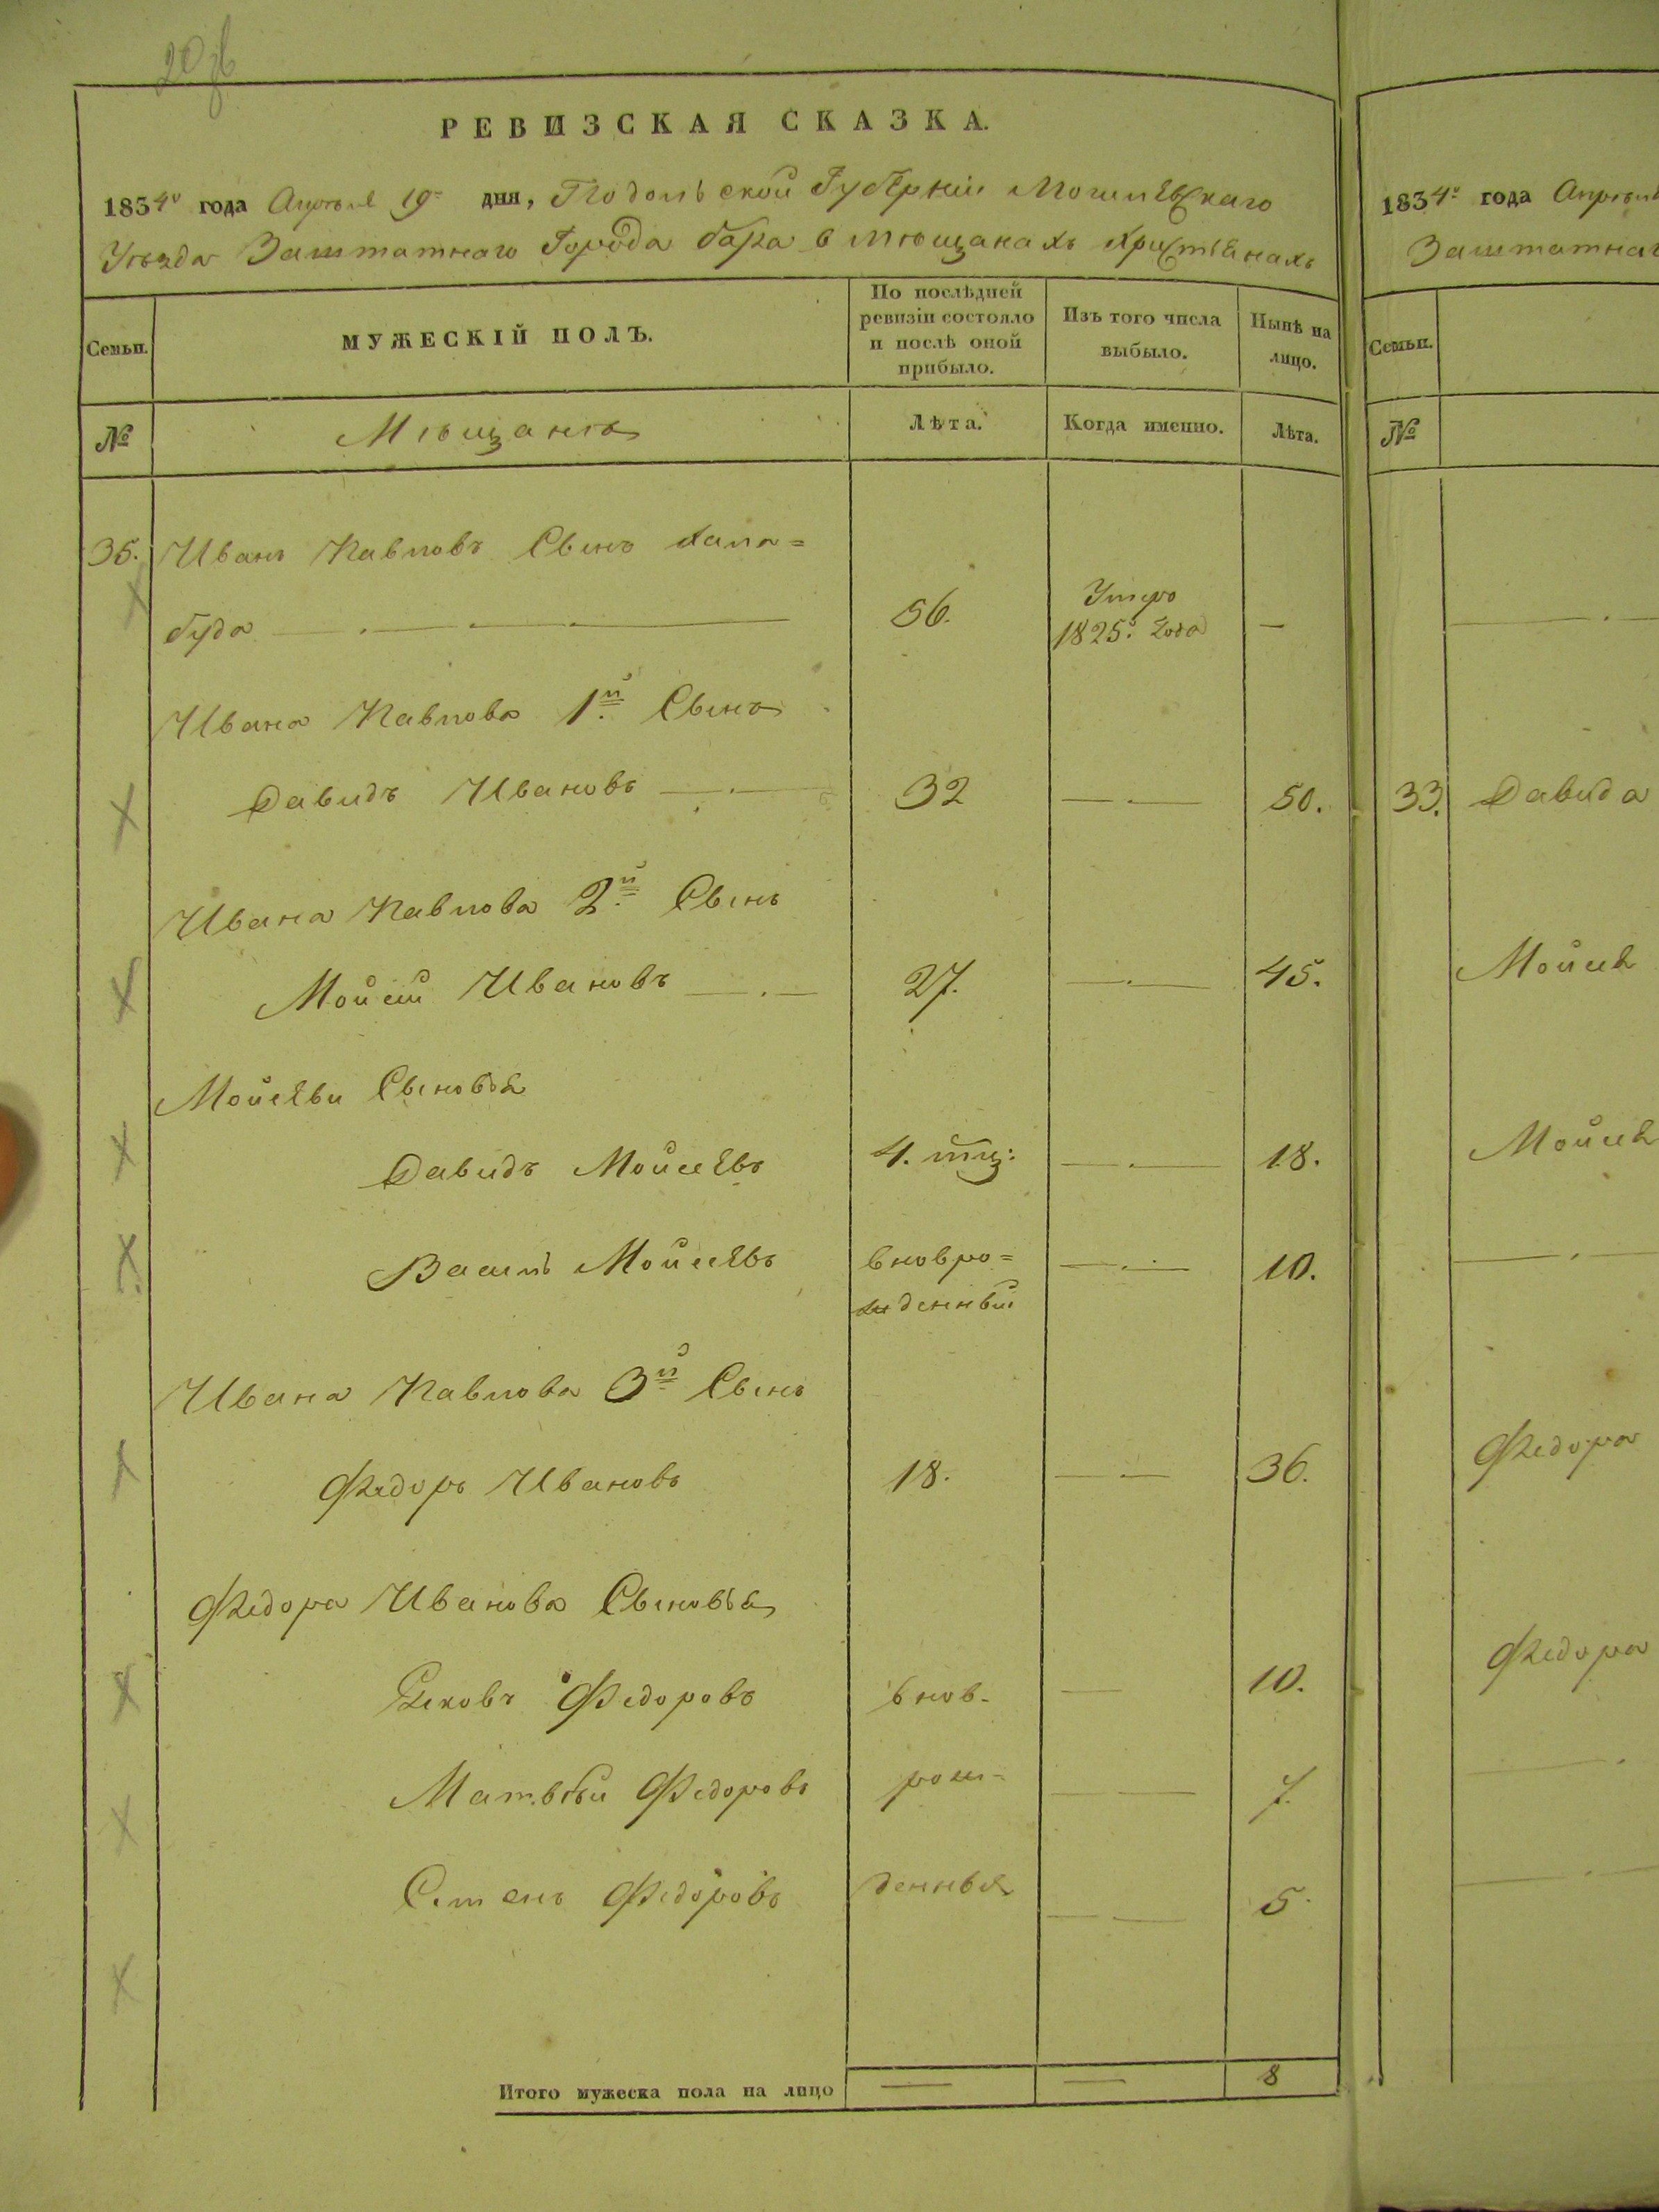 20 об
РЕВИЗСКАЯ СКАЗКА.
1834го года Апреля 19го дня, Подольской Губерніи Могилевскаго
Уѣзда Заштатнаго Города бара о мѣщанахъ христіанахъ
Семьи.
МУЖЕСКІЙ ПОЛЪ.
По послѣдней ревизіи состояло и послѣ оной прибыло.
Изъ того числа выбыло.
Нынѣ на лицо.
№
Мѣщане
Лѣта.
Когда именно.
Лѣта.
35. Иванъ Павловъ Сынъ хала=
буда 56. Умеръ 1825го года —
Ивана Павлова 1й Сынъ
Давидъ Ивановъ 32 — 50.
Ивана Павлова 2й Сынъ
Мойсей Ивановъ 27. — 45.
Мойсеѣви Сыновья
Давидъ Мойсеевъ 4. мц: — 18.
Василь Мойсеевъ вновро= — 10.
жденный
Ивана Павлова 3й Сынъ
Федоръ Ивановъ 18. — 36.
Федора Иванова Сыновья
Яковъ Федоровъ внов- — 10.
Матвѣй Федоровъ рож- — 7.
Семенъ Федоровъ денныя — 5.
Итого мужеска пола на лицо — — 8
1834го года Апреля
Заштатнаг
Семьи.
№
33. Давида
Мойсе
Мойсе
Федора
Федора